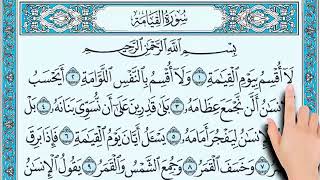 سُورَةُ الْقِيَامَةِ
بِسْمِ اللَّهِ الرَّحْمَٰنِ الرَّحِيمِ
لَا أُقْسِمُ بِيَوْمِ الْقِيَامَةِ ١ وَلَا أُقْسِمُ بِالنَّفْسِ اللَّوَّامَةِ ٢ أَيَحْسَبُ
الْإِنسَانُ أَلَّن نَّجْمَعَ عِظَامَهُ ٣ بَلَىٰ قَادِرِينَ عَلَىٰ أَن نُّسَوِّيَ بَنَانَهُ ٤ بَلْ
يُرِيدُ الْإِنسَانُ لِيَفْجُرَ أَمَامَهُ ٥ يَسْأَلُ أَيَّانَ يَوْمُ الْقِيَامَةِ ٦ فَإِذَا بَرِقَ
الْبَصَرُ ٧ وَخَسَفَ الْقَمَرُ ٨ وَجُمِعَ الشَّمْسُ وَالْقَمَرُ ٩ يَقُولُ الْإِنسَانُ